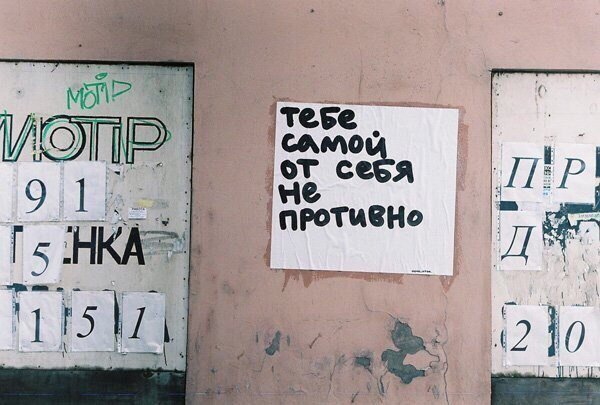 мотір
МОТІР
91
ЕНКА
5
151
тебе
самой
от себя
не
противно
ПР
Д
20